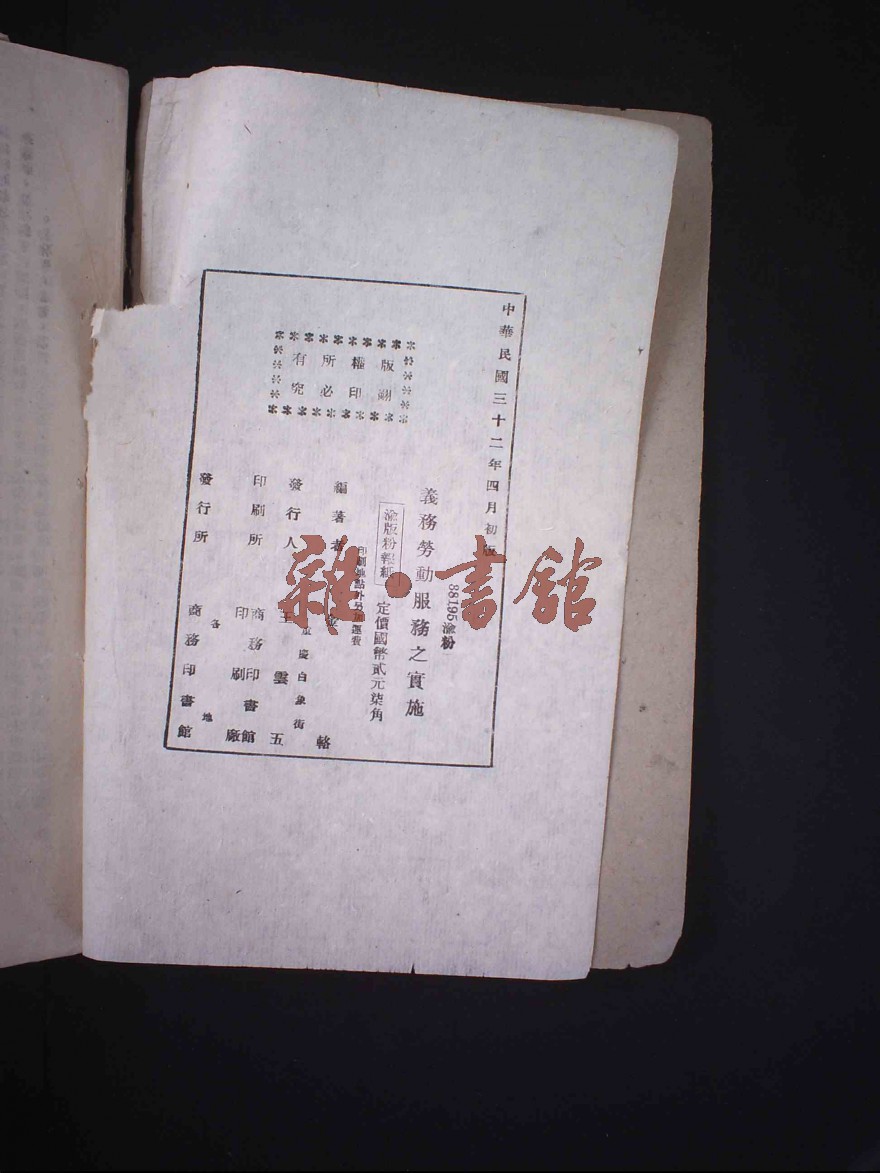 中華民國三十二年四月初版
版權所有
翻印必究
88195渝粉
義務勞動服務之實施
渝版粉報紙
定價國幣貳元柒角
印刷地點外另加運費
編著者
輅
重慶白象街
發行人 王雲五
印刷所 商務印書館
印刷廠
發行所 各地
商務印書館
雜·書館